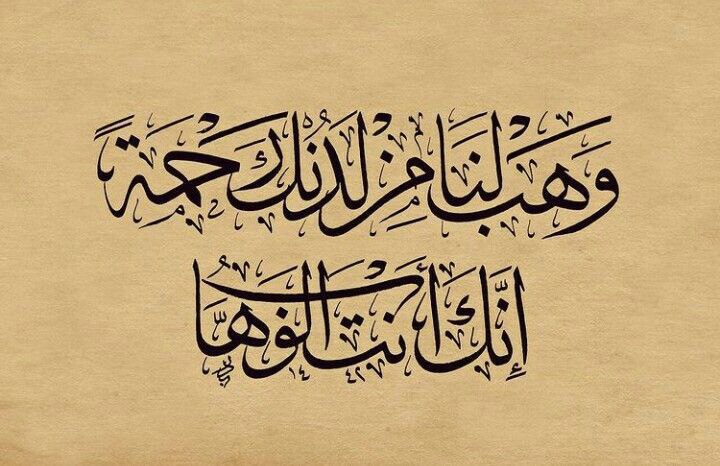 وَهَبْ لَنَا مِن لَّدُنكَ رَحْمَةً
إِنَّكَ أَنتَ الْوَهَّابُ
١٤٤٢